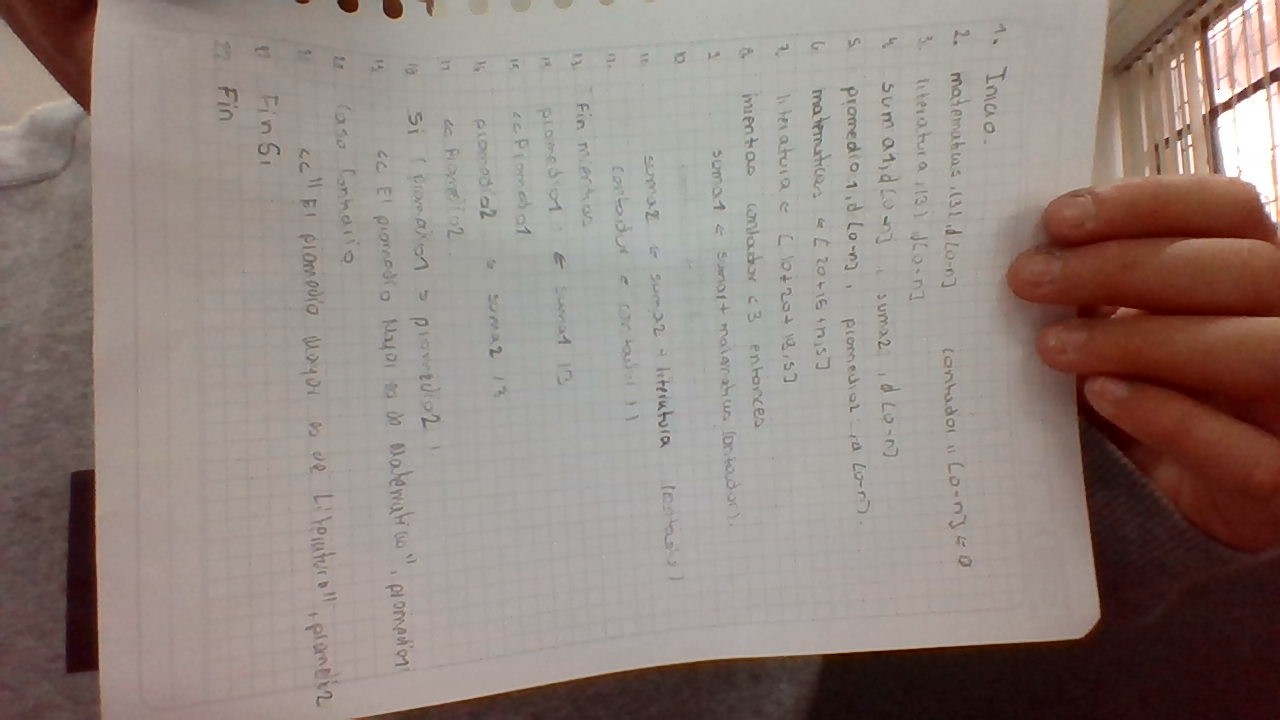 1. Inicio.
2. matematicas,(3),d[0-n] contador,,[0-n]←0
3. literatura,(3),d[0-n]
4. suma1,d[0-n], suma2,,d[0-n]
5. promedio1,d[0-n], promedio2,,d[0-n].
6. matematicas ←[20+15+17,5]
7. literatura ←[10+20+18,5]
8. mientras contador <3 entonces
9. suma1 ← suma1+matematicas(contador).
10
11. suma2 ← suma2+literatura
12. contador ← contador
13. fin mientras
14. promedio1 ← suma1/3
15. <<promedio1
16. promedio2 ← suma2/3
17. <<promedio2
18. Si (promedio1 > promedio2)
19. <<El promedio Mayor es de Matematicas", promedio1
20. Caso Contrario
21. <<"El promedio Mayor es de Literatura", promedio2
FinSi
22. Fin